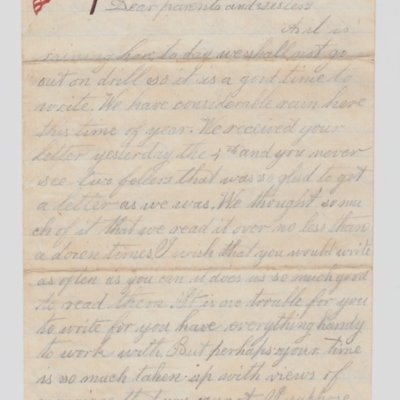 Dear parents and sisters
As it is
raining here to day we shall not go
out on drill so it is a good time to
write. We have considerable rain here
this time of year. We received your
letter yesterday the 4th and you never
see two fellows that was so glad to get
a letter as we was. We thought so mu
ch of it that we read it over no less than
a dozen times. I wish that you would write
as often as you can it does us so much good
to read them. It is no trouble for you
to write for you have everything handy
to work with. But perhaps your time
is so much taken up with views of
that you cannot. I suppose